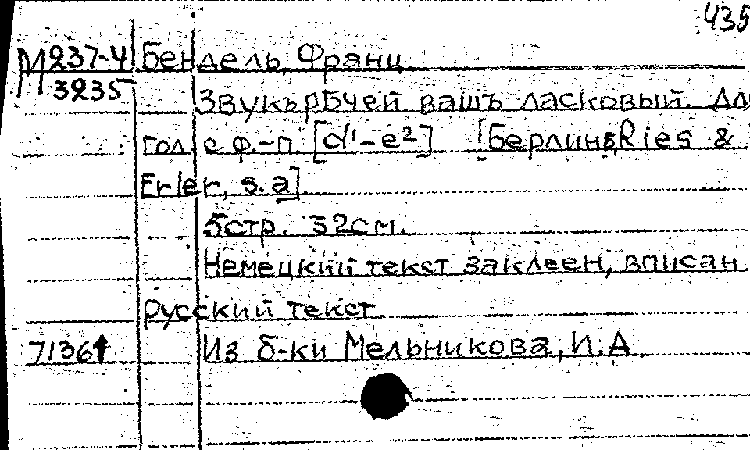 435
М237-4 Бендель, Франц
3235 Звукърѣчей вашъ ласковый. Для
гол. с ф.-п. [d'-e²] [Берлинъ, Ries &
Erler, s.a]
5стр. 32см.
Немецкий текст заклеен, вписан
русский текст
7136↑ Из б-ки Мельникова, И.А.